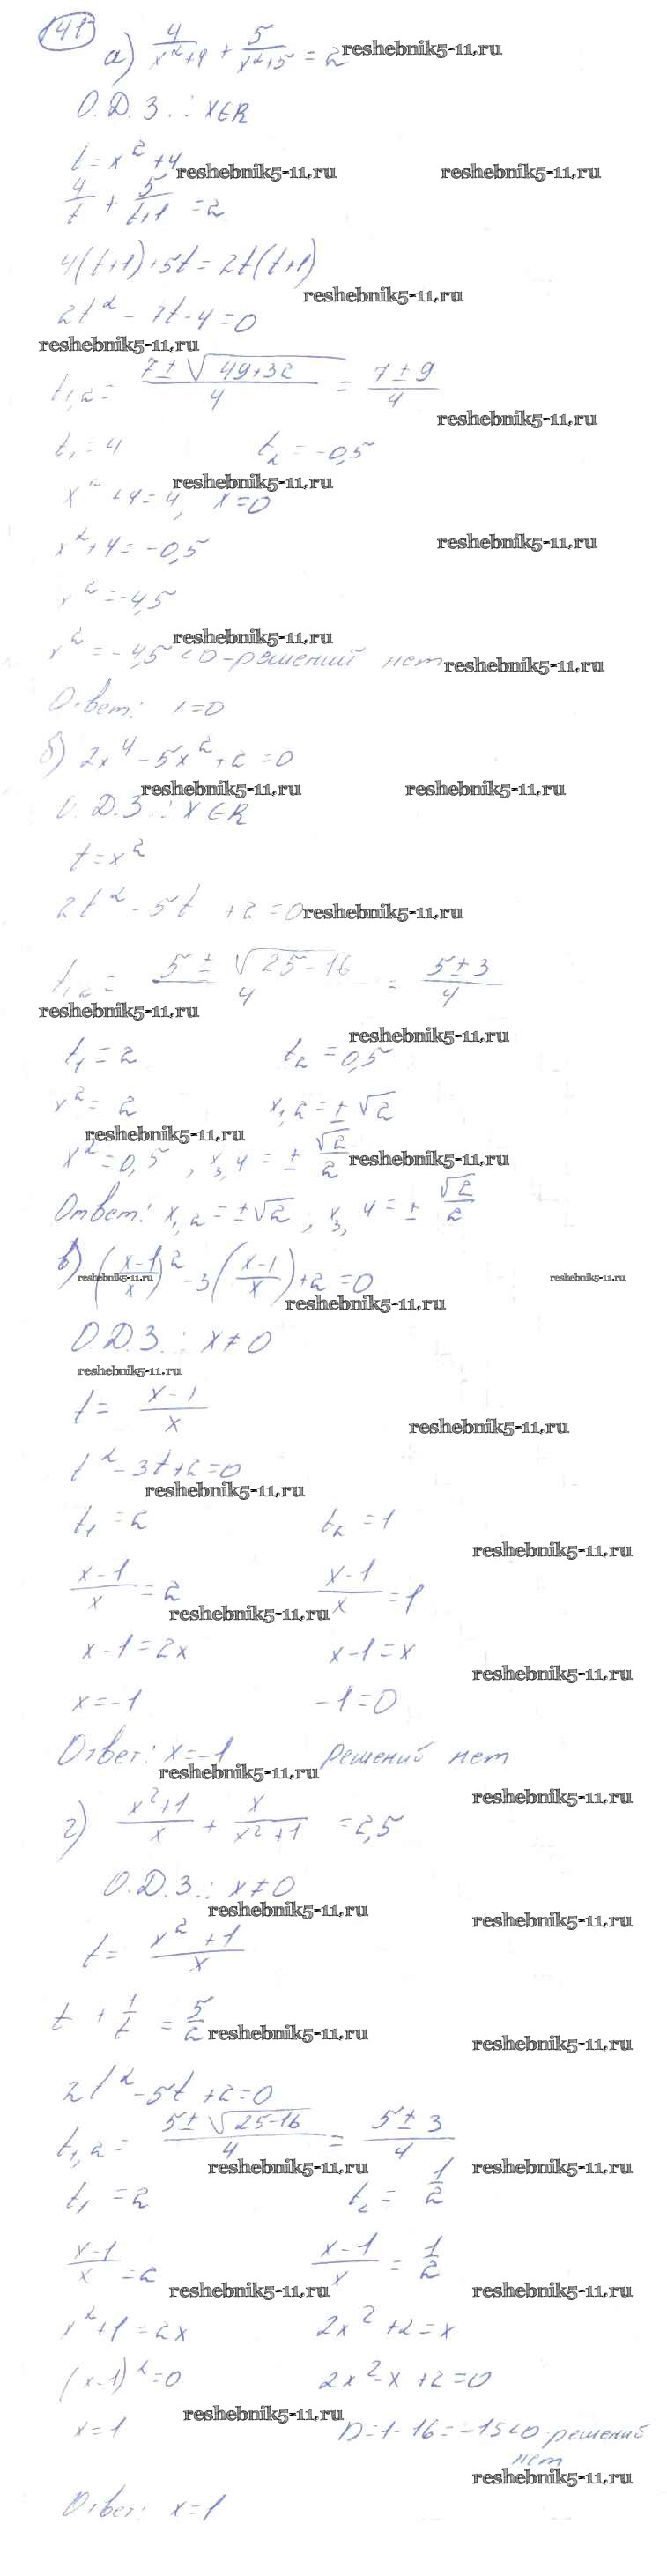 141
а) 4/(x²+4) + 5/(x²+5) = 2 reshebnik5-11.ru
О.Д.З.: x∈R
t = x² + 4
reshebnik5-11.ru reshebnik5-11.ru
4/t + 5/(t+1) = 2
4(t+1)+5t = 2t(t+1)
reshebnik5-11.ru
2t² - 7t - 4 = 0
reshebnik5-11.ru
t₁,₂ = (7 ± √(49+32))/4 = (7 ± 9)/4
reshebnik5-11.ru
t₁ = 4 t₂ = -0,5
reshebnik5-11.ru
x² + 4 = 4, x = 0
x² + 4 = -0,5 reshebnik5-11.ru
x² = -4,5
reshebnik5-11.ru
x² = -4,5 < 0 - решений нет reshebnik5-11.ru
Ответ: x = 0
б) 2x⁴ - 5x² + 2 = 0
reshebnik5-11.ru reshebnik5-11.ru
О.Д.З.: x∈R
t = x²
2t² - 5t + 2 = 0 reshebnik5-11.ru
t₁,₂ = (5 ± √(25-16))/4 = (5 ± 3)/4
reshebnik5-11.ru
reshebnik5-11.ru
t₁ = 2 t₂ = 0,5
x² = 2 x₁,₂ = ±√2
reshebnik5-11.ru
x² = 0,5, x₃,₄ = ± √2/2 reshebnik5-11.ru
Ответ: x₁,₂ = ±√2; x₃,₄ = ± √2/2
в) ((x-1)/x)² - 3((x-1)/x) + 2 = 0
reshebnik5-11.ru reshebnik5-11.ru
reshebnik5-11.ru
О.Д.З.: x ≠ 0
reshebnik5-11.ru
t = (x-1)/x
reshebnik5-11.ru
t² - 3t + 2 = 0
reshebnik5-11.ru
t₁ = 2 t₂ = 1
reshebnik5-11.ru
(x-1)/x = 2 (x-1)/x = 1
reshebnik5-11.ru
x - 1 = 2x x - 1 = x
reshebnik5-11.ru
x = -1 -1 = 0
Ответ: x = -1 решений нет
reshebnik5-11.ru
reshebnik5-11.ru
г) (x²+1)/x + x/(x²+1) = 2,5
О.Д.З.: x ≠ 0
reshebnik5-11.ru
reshebnik5-11.ru
t = (x²+1)/x
t + 1/t = 5/2 reshebnik5-11.ru
reshebnik5-11.ru
2t² - 5t + 2 = 0
t₁,₂ = (5 ± √(25-16))/4 = (5 ± 3)/4
reshebnik5-11.ru reshebnik5-11.ru
t₁ = 2 t₂ = 1/2
(x-1)/x = 2 (x-1)/x = 1/2
reshebnik5-11.ru reshebnik5-11.ru
x² + 1 = 2x 2x² + 2 = x
(x-1)² = 0 2x² - x + 2 = 0
reshebnik5-11.ru
x = 1 D = 1 - 16 = -15 < 0 - решений
нет
reshebnik5-11.ru
Ответ: x = 1